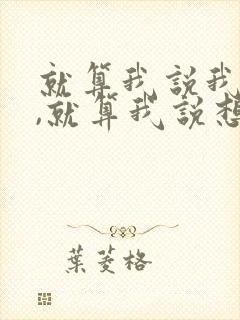 就算我說我
,就算我說想
葉菱格